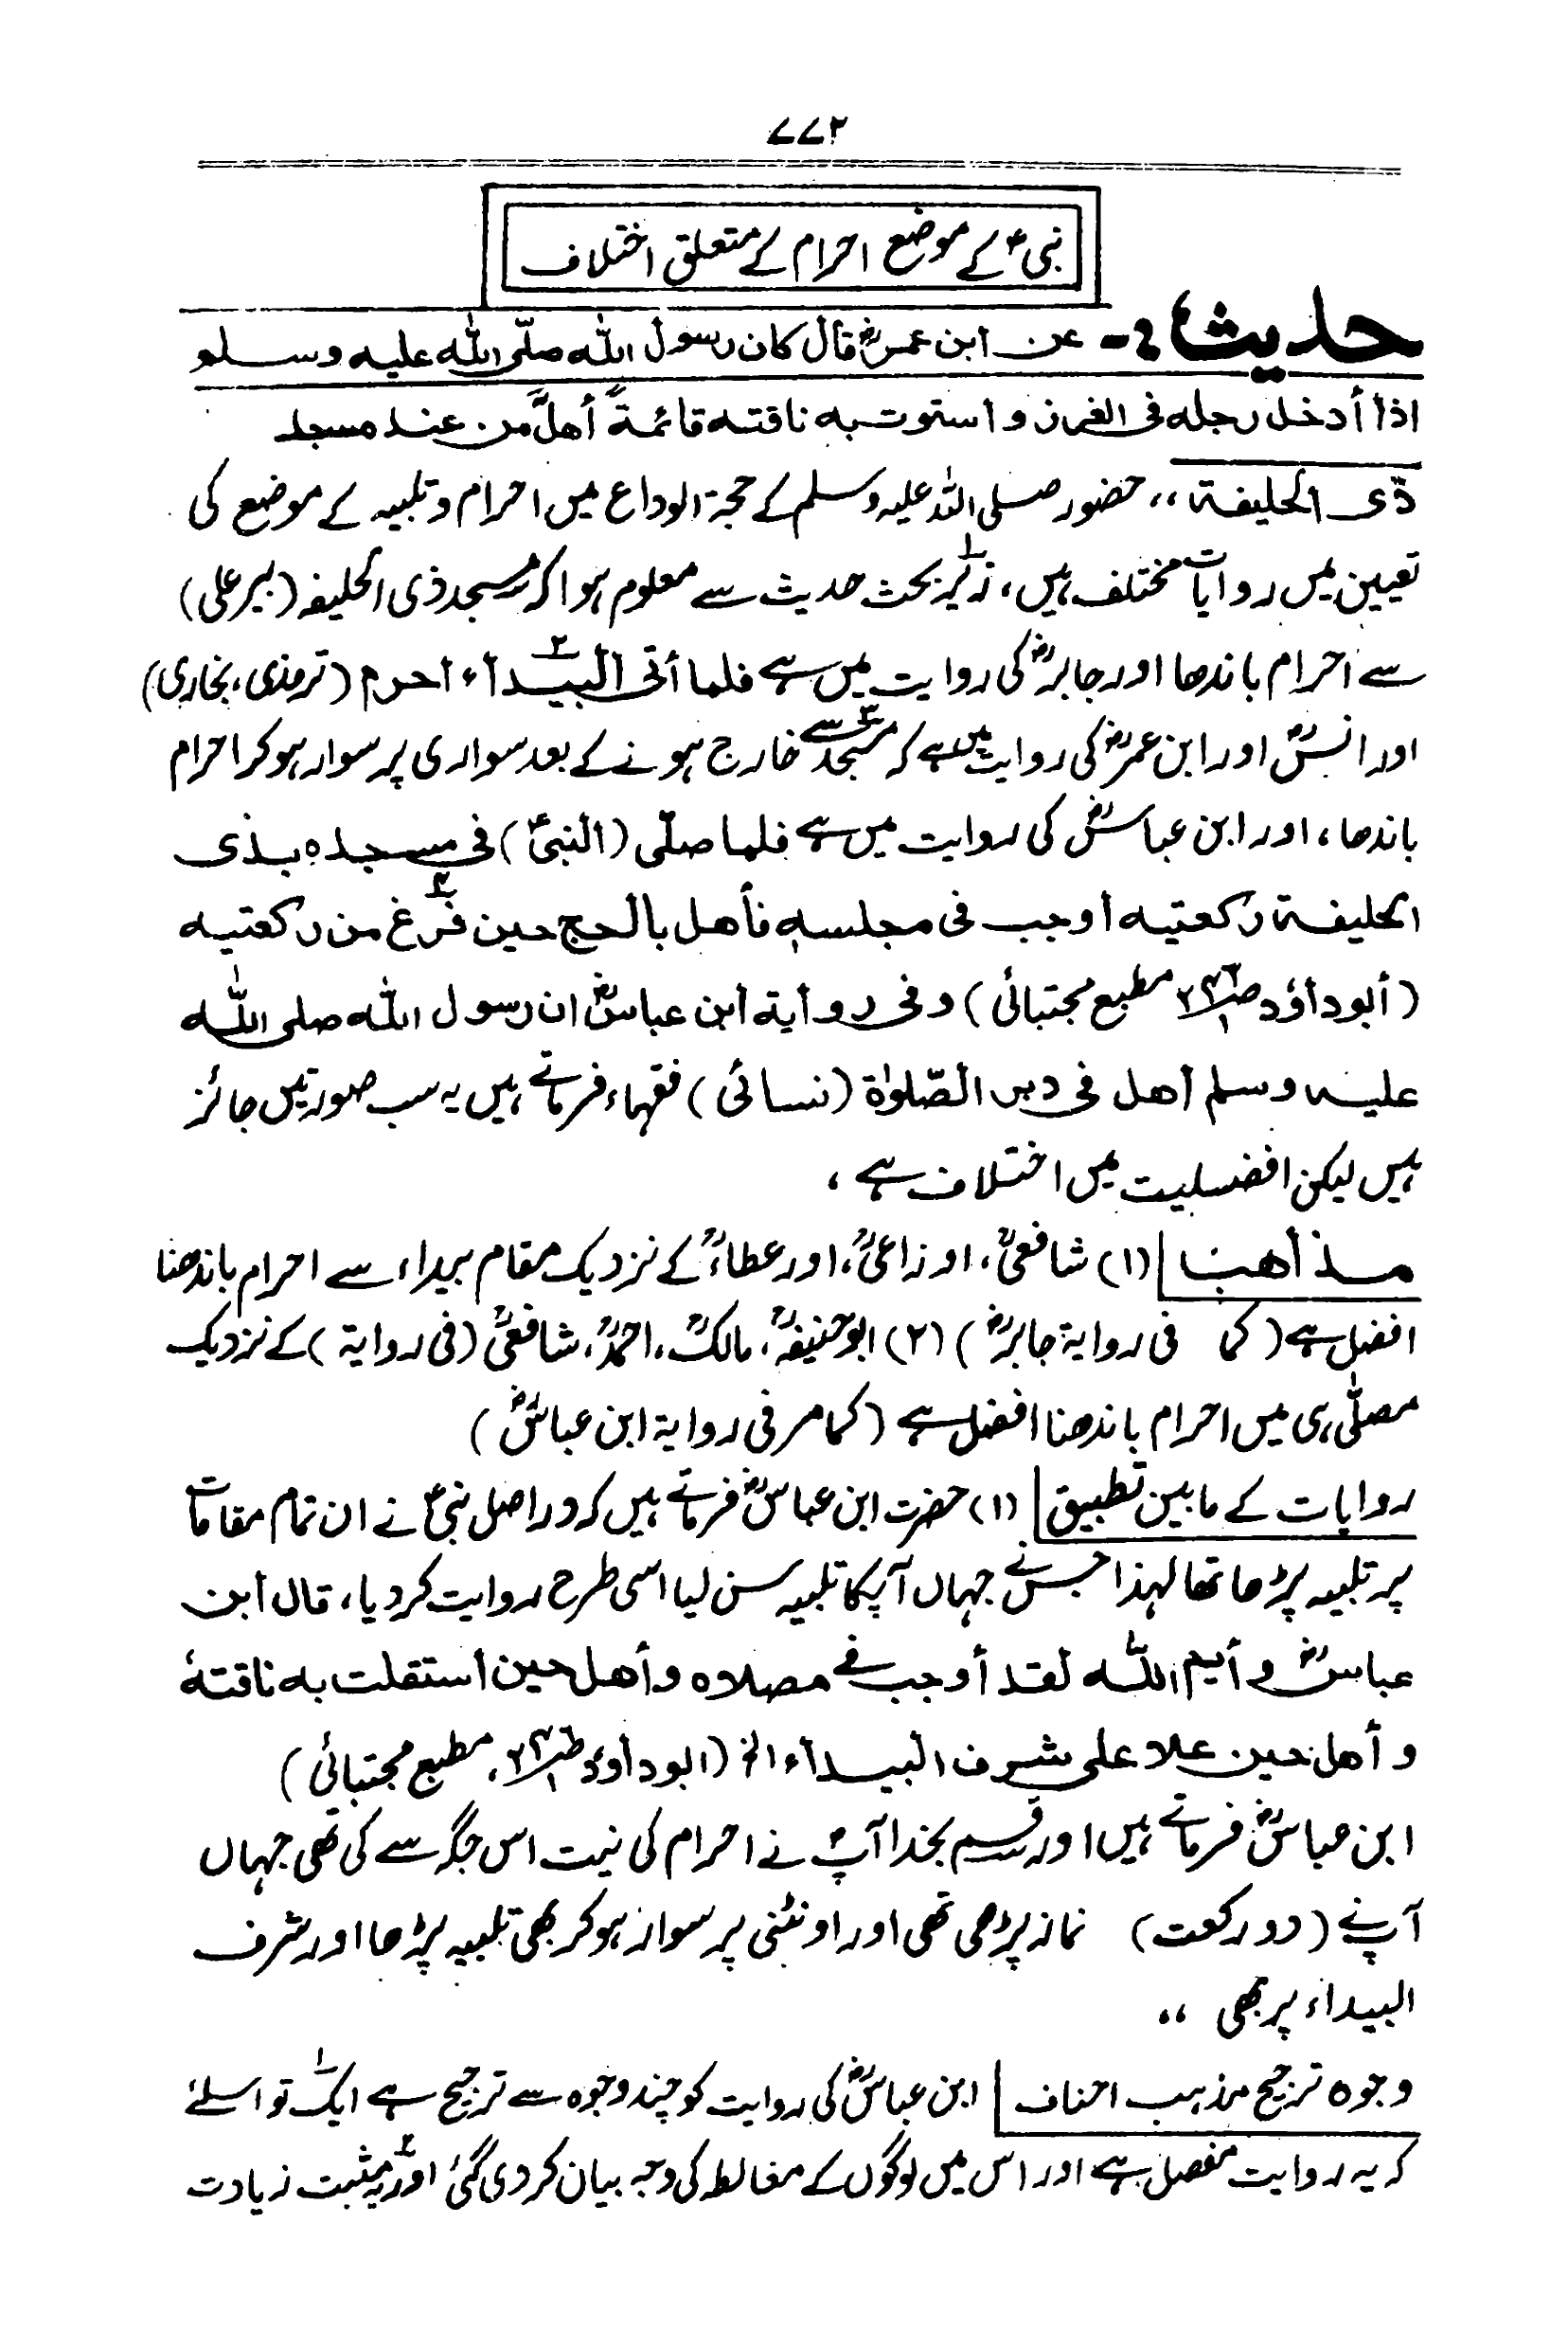 ۷۷۲
نبیؐ کے موضع احرام کے متعلق اختلاف
حدیث :- عن ابن عمرؓ قال کان رسول اللہ صلّی اللہ علیہ وسلم
اذا أدخل رجله فی الغرز و استوت به ناقته قائمةً أهلَّ من عند مسجد
ذی الحلیفة ،، حضور صلی اللہ علیہ وسلم کے حجۃ الوداع میں احرام و تلبیہ کے موضع کی
تعیین میں روایات مختلف ہیں، زیرِ بحث حدیث سے معلوم ہوا کہ ۱ مسجد ذی الحلیفہ (بیر علی)
سے احرام باندھا اور جابرؓ کی روایت میں ہے فلما أتی البیداء ۲ احرم (ترمذی، بخاری)
اور انسؓ اور ابن عمرؓ کی روایت میں ہے کہ ۳ مسجد سے خارج ہونے کے بعد سواری پر سوار ہوکر احرام
باندھا، اور ابن عباسؓ کی روایت میں ہے فلما صلّی (النبیؐ) فی مسجدہ بذی
الحلیفة رکعتیه أوجب فی مجلسه فأهل بالحج حین ۴ فرغ من رکعتیه
(أبوداؤد ص۲۴۶/۱ مطبع مجتبائی) و فی روایة ابن عباسؓ ان رسول اللہ صلی اللہ
علیه وسلم أهل فی دبر الصّلوٰة (نسائی) فقہاء فرماتے ہیں یہ سب صورتیں جائز
ہیں لیکن افضلیت میں اختلاف ہے ،
مذاهب (۱) شافعیؒ، اوزاعیؒ، اور عطاءؒ کے نزدیک مقام بیداء سے احرام باندھنا
افضل ہے (کما فی روایۃ جابرؓ) (۲) ابوحنیفہؒ، مالکؒ، احمدؒ، شافعیؒ (فی روایۃ) کے نزدیک
مصلّٰی ہی میں احرام باندھنا افضل ہے (کما مر فی روایۃ ابن عباسؓ)
روایات کے مابین تطبیق (۱) حضرت ابن عباسؓ فرماتے ہیں کہ دراصل نبیؐ نے ان تمام مقامات
پر تلبیہ پڑھا تھا لہذا جس نے جہاں آپ کا تلبیہ سن لیا اسی طرح روایت کردیا، قال ابن
عباسؓ و أیم اللہ لقد أوجب فی مصلاہ و أهل حین استقلت به ناقتهٗ
و أهل حین علا علی شرف البیداء الخ (ابوداؤد ص۲۴۶/۱، مطبع مجتبائی)
ابن عباسؓ فرماتے ہیں اور قسم بخدا آپؐ نے احرام کی نیت اس جگہ سے کی تھی جہاں
آپنے (دو رکعت) نماز پڑھی تھی اور اونٹنی پر سوار ہوکر بھی تلبیہ پڑھا اور شرف
البیداء پر بھی ،،
وجوہ ترجیح مذہب احناف ابن عباسؓ کی روایت کو چند وجوہ سے ترجیح ہے ۱ ایک تو اسلئے
کہ یہ روایت مفصل ہے اور اس میں لوگوں کے مغالطہ کی وجہ بیان کردی گئی ۲ اور یہ مثبت زیادت